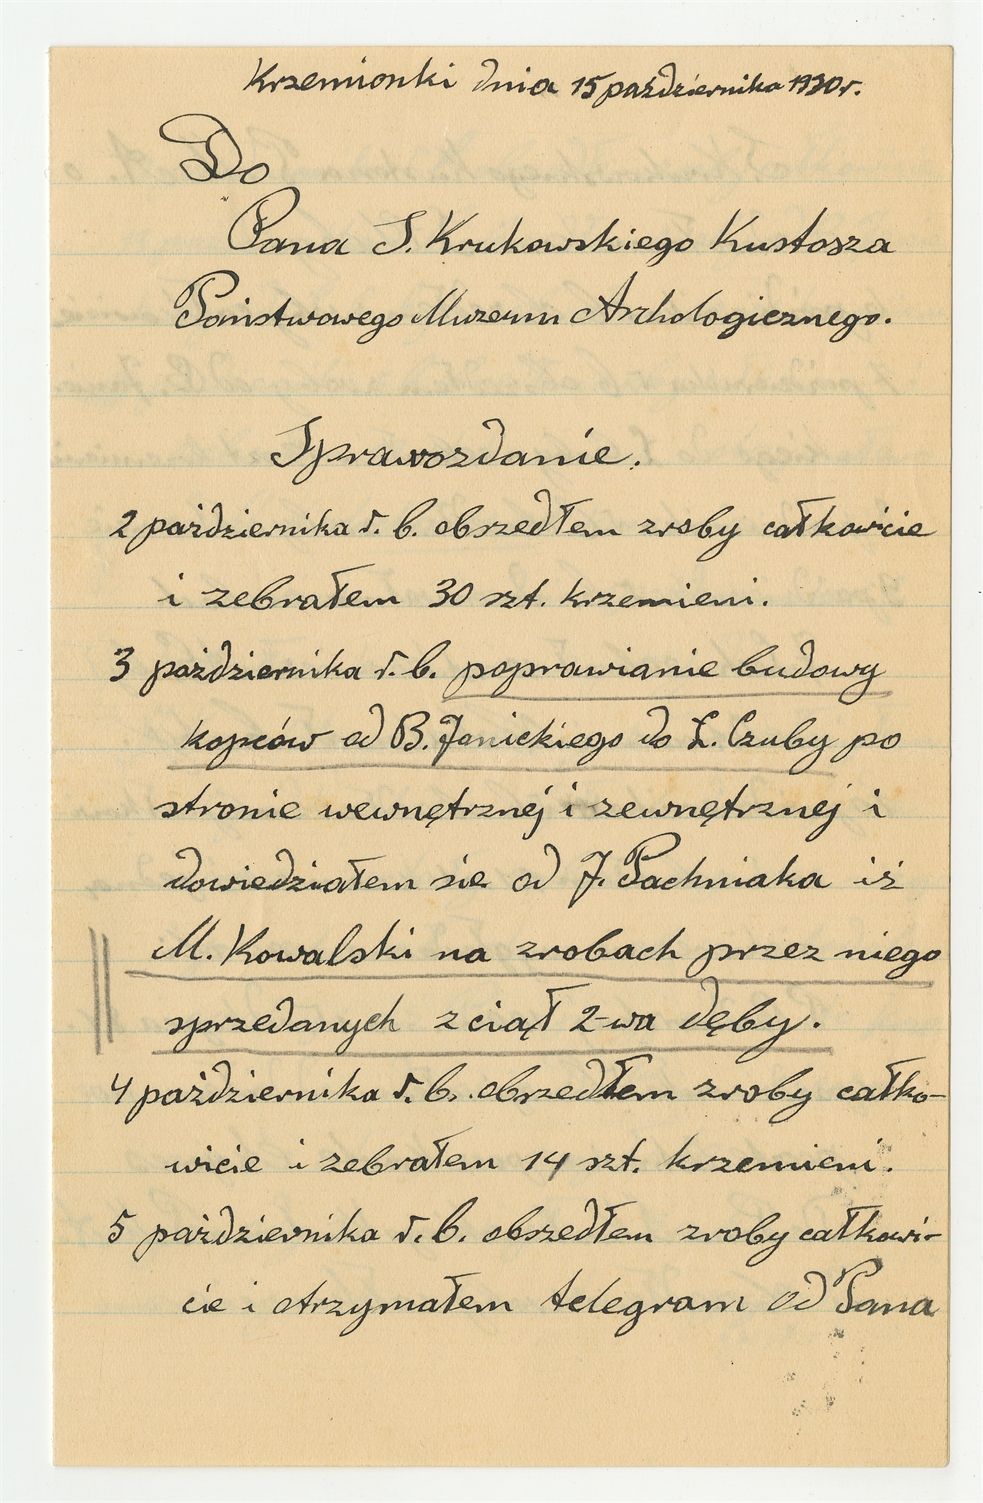 Krzemionki dnia 15 października 1930r.
Do
Pana S. Krukowskiego Kustosza
Państwowego Muzeum Archologicznego.
Sprawozdanie.
2 października r. b. obszedłem zroby całkowicie
i zebrałem 30 szt. krzemieni.
3 października r. b. poprawianie budowy
kopców od B. Janickiego do L. Czuby po
stronie wewnętrznej i zewnętrznej i
dowiedziałem sie od J. Pachniaka iż
M. Kowalski na zrobach przez niego
sprzedanych zciął 2-wa dęby.
4 października r. b. obszedłem zroby całko-
wicie i zebrałem 14 szt. krzemieni.
5 października r. b. obszedłem zroby całkowi-
cie i otrzymałem telegram od Pana